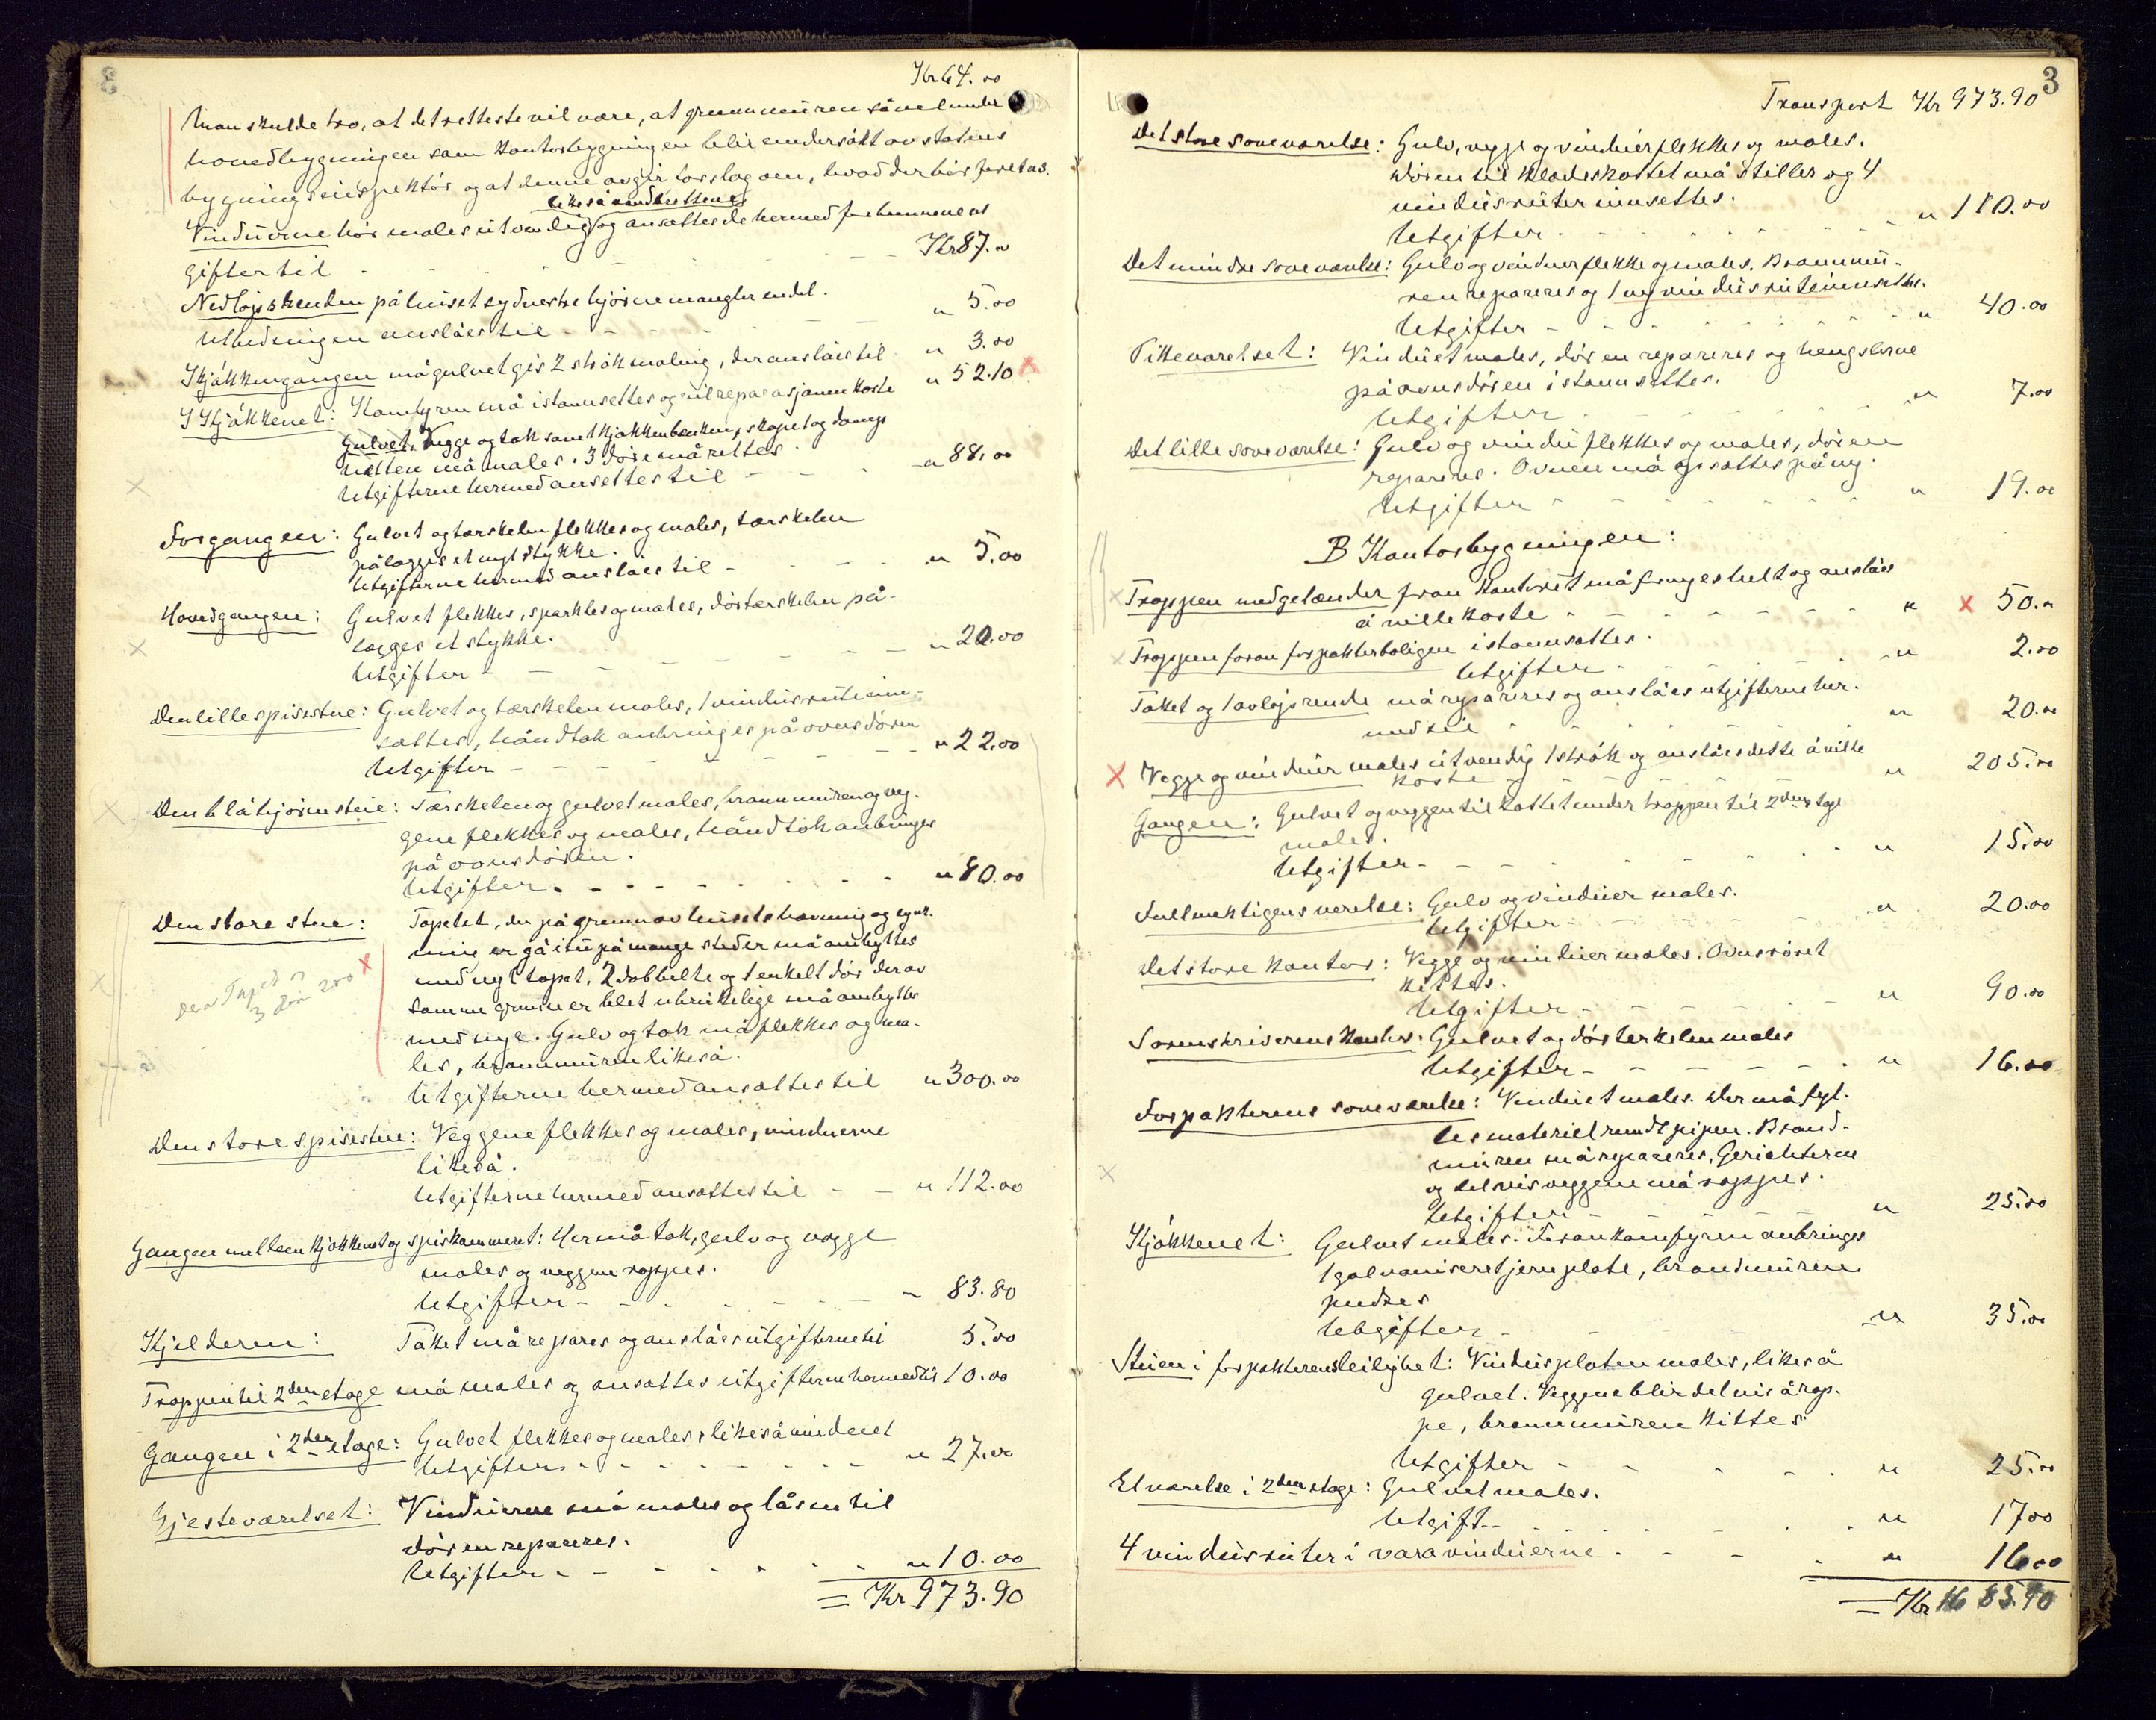 Kr 64.00
Man skulde tro, at det retteste vil være, at grunnmuren såvel under
hovedbygningen som kontorbygningen blir undersøkt av statens
bygningsinspektør og at denne avgir forslag om, hvad der bør foretas.
likeså vindskottene
Vinduerne bør males utvendig og ansættes de hermed forbunnene ut
gifter til - - - - - - Kr 87.00
Nedløpsrenden på huset sydvestre hjørne mangler endel.
Utbedringen anslåes til - - - - „ 5.00
I Kjøkkengangen må gulvet gis 2 strøk maling, der anslåes til „ 3.00
I Kjøkkenet: Komfyren må istannsettes og vil reparasjonen koste „ 52.10 x
Gulvet, Vegge og tak samt kjøkkenbenken, skapet og damp
hetten må males. 3 døre må rettes.
Utgifterne hermed ansettes til - - - „ 88.00
Forgangen: Gulvet og tærskelen flekkes og males, tærskelen
pålægges et nyt stykke.
Utgifterne hermed anslåes til - - - „ 5.00
Hovedgangen: Gulvet flekkes, sparkles og males, dørtærskelen på-
lægges et stykke.
Utgifter - - - - - „ 20.00
Den lille spisestue: Gulvet og tærskelen males, 1 vindusrute inn-
sættes, håndtak anbringes på ovnsdøren
Utgifter - - - - - „ 22.00
Den blå hjørnestue: Tærskelen og gulvet males, brannmuren og veg-
gene flekkes og males, håndtak anbringes
på ovnsdøren.
Utgifter - - - - - „ 80.00
Den store stue: Tapetet, der på grunn av husets hævning og synk-
ning er gåt itu på mange steder må ombyttes
med nyt tapet, 2 dobbelte og 1 enkelt dør der av
samme grunn er blet ubrukelige må ombyttes
med nye. Gulv og tak må flekkes og ma-
les, brannmuren likeså.
Utgifterne hermed ansættes til „ 300.00
x
3 dør 200
Den store spisestue: Veggene flekkes og males, vinduerne
likeså.
Utgifterne hermed ansættes til - - „ 112.00
Gangen mellem kjøkkenet og spiskammeret: Her må tak, gulv og vegge
males og veggene rappes.
Utgifter - - - - - - 83.80
Kjelderen: Taket må repares og anslåes utgifterne til 5.00
Trappen til 2den etage må males og ansættes utgifterne hermed til 10.00
Gangen i 2den etage: Gulvet flekkes og males, likeså vinduet
Utgifter - - - - - „ 27.00
Gjesteværelset: Vinduerne må males og låsen til
døren repareres.
Utgifter - - - - - „ 10.00
= Kr 973.90
3
Transport Kr 973.90
Det store soveværelse: Gulv, vegge og vinduer flekkes og males.
Døren til klædeskottet må stilles og 4
vindusruter innsettes.
Utgifter - - - - - „ 110.00
Det mindre soveværelse: Gulv og vinduer flekke og males. Brannmu-
ren repareres og 1 ny vindusrute innsettes.
Utgifter - - - - - „ 40.00
Pikeværelset: Vinduet males, døren repareres og hengslerne
på ovnsdøren istannsettes.
Utgifter - - - - - „ 7.00
Det lille soveværelse: Gulv og vindu flekkes og males, døren
repareres. Ovnen må opsættes på ny.
Utgifter - - - - - „ 19.00
B Kontorbygningen:
Trappen med gelænder fran kontoret må fornyes helt og anslåes
å ville koste - - - - - „ x 50.00
Trappen foran forpakterboligen istannsættes.
Utgifter - - - - „ 2.00
Taket og 1 avløpsrende må repareres og anslåes utgifterne her-
med til - - - - - „ 20.00
x Vegge og vinduer males utvendig 1 strøk og anslåes dette å ville
koste - - „ 205.00
Gangen: Gulvet og veggen til kottet under trappen til 2den etage
males.
Utgifter - - - - - „ 15.00
Fullmektigens værelse: Gulv og vinduer males.
Utgifter - - - - „ 20.00
Det store kontor: Vegge og vinduer males. Ovnsrøret
kittes.
Utgifter - - - - - „ 90.00
Sorenskriverens kontor: Gulvet og dørterkelen males
Utgifter - - - - - „ 16.00
Forpakterens soveværelse: Vinduet males. Der må fyl-
les materiel rundt pipen. Brand-
muren må repareres. Gerichterne
og delvis veggene må rappes.
Utgifter - - - - „ 25.00
Kjøkkenet: Gulvet males. Foran komfyren anbringes
1 galvaniseret jernplate, brandmuren
pudses
Utgifter - - - - „ 35.00
Stuen i forpakterens leilighet: Vindusplaten males, likeså
gulvet. Veggene blir delvis å rap-
pe, brannmuren kittes.
Utgifter - - - - „ 25.00
Et værelse i 2den etage: Gulvet males.
Utgift - - - - - „ 17.00
4 vindusruter i varavinduerne - - - - „ 16.00
= Kr 1685.90